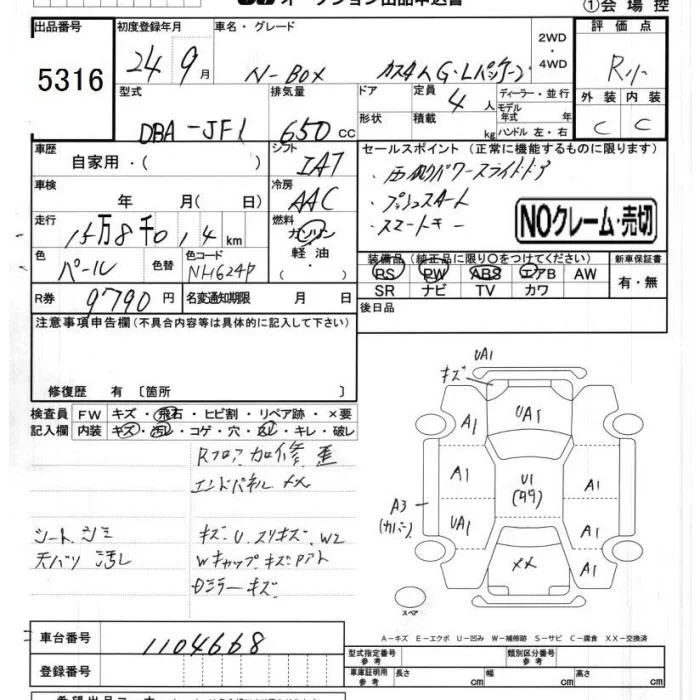 ①会場控
出品番号
5316
初度登録年月
24 9月
車名・グレード
N-BOX カスタムG・Lパッケージ
2WD
・
4WD
評価点
R
外装 内装
C C
型式
DBA-JF1
排気量
650cc
ドア
形状
定員
4人
積載
kg
ディーラー・並行
モデル
年式 年
ハンドル 左・右
車歴
自家用・( )
シフト
IAT
セールスポイント (正常に機能するものに限ります)
・両側パワースライドドア
・プッシュスタート
・スマートキー
NOクレーム・売切
車検
年 月( 日)
冷房
AAC
走行
15万8千014km
燃料
ガソリン
軽油・
( )
色
パール
色替
色コード
NH624P
装備品 (純正品に限り○をつけてください)
RS PW ABS エアB AW
SR ナビ TV カワ
新車保証書
有・無
R券
9790円
名変通知期限 月 日
後日品
注意事項申告欄(不具合内容等は具体的に記入して下さい)
修復歴 有 〔箇所 〕
検査員
記入欄
FW キズ・飛石・ヒビ割・リペア跡・×要
内装 キズ・汚レ・コゲ・穴・ ・キレ・破レ
Rフロア加修 歪
エンドパネル XX
シート シミ
天バリ 汚レ
キズ、U、スリキズ、W2
Wキャップ キズ
Dミラーキズ
UA1
キズ
UA1
A1
A1
A1
A1
U1
UA1
A1
A1
A3
(カバー)
XX
スペア
A-キズ E-エクボ U-凹み W-補修跡 S-サビ C-腐食 XX-交換済
車台番号
1104668
登録番号
型式指定番号
参考
類別区分番号
参考
車庫証明用
参考
長さ cm
幅 cm
高さ cm